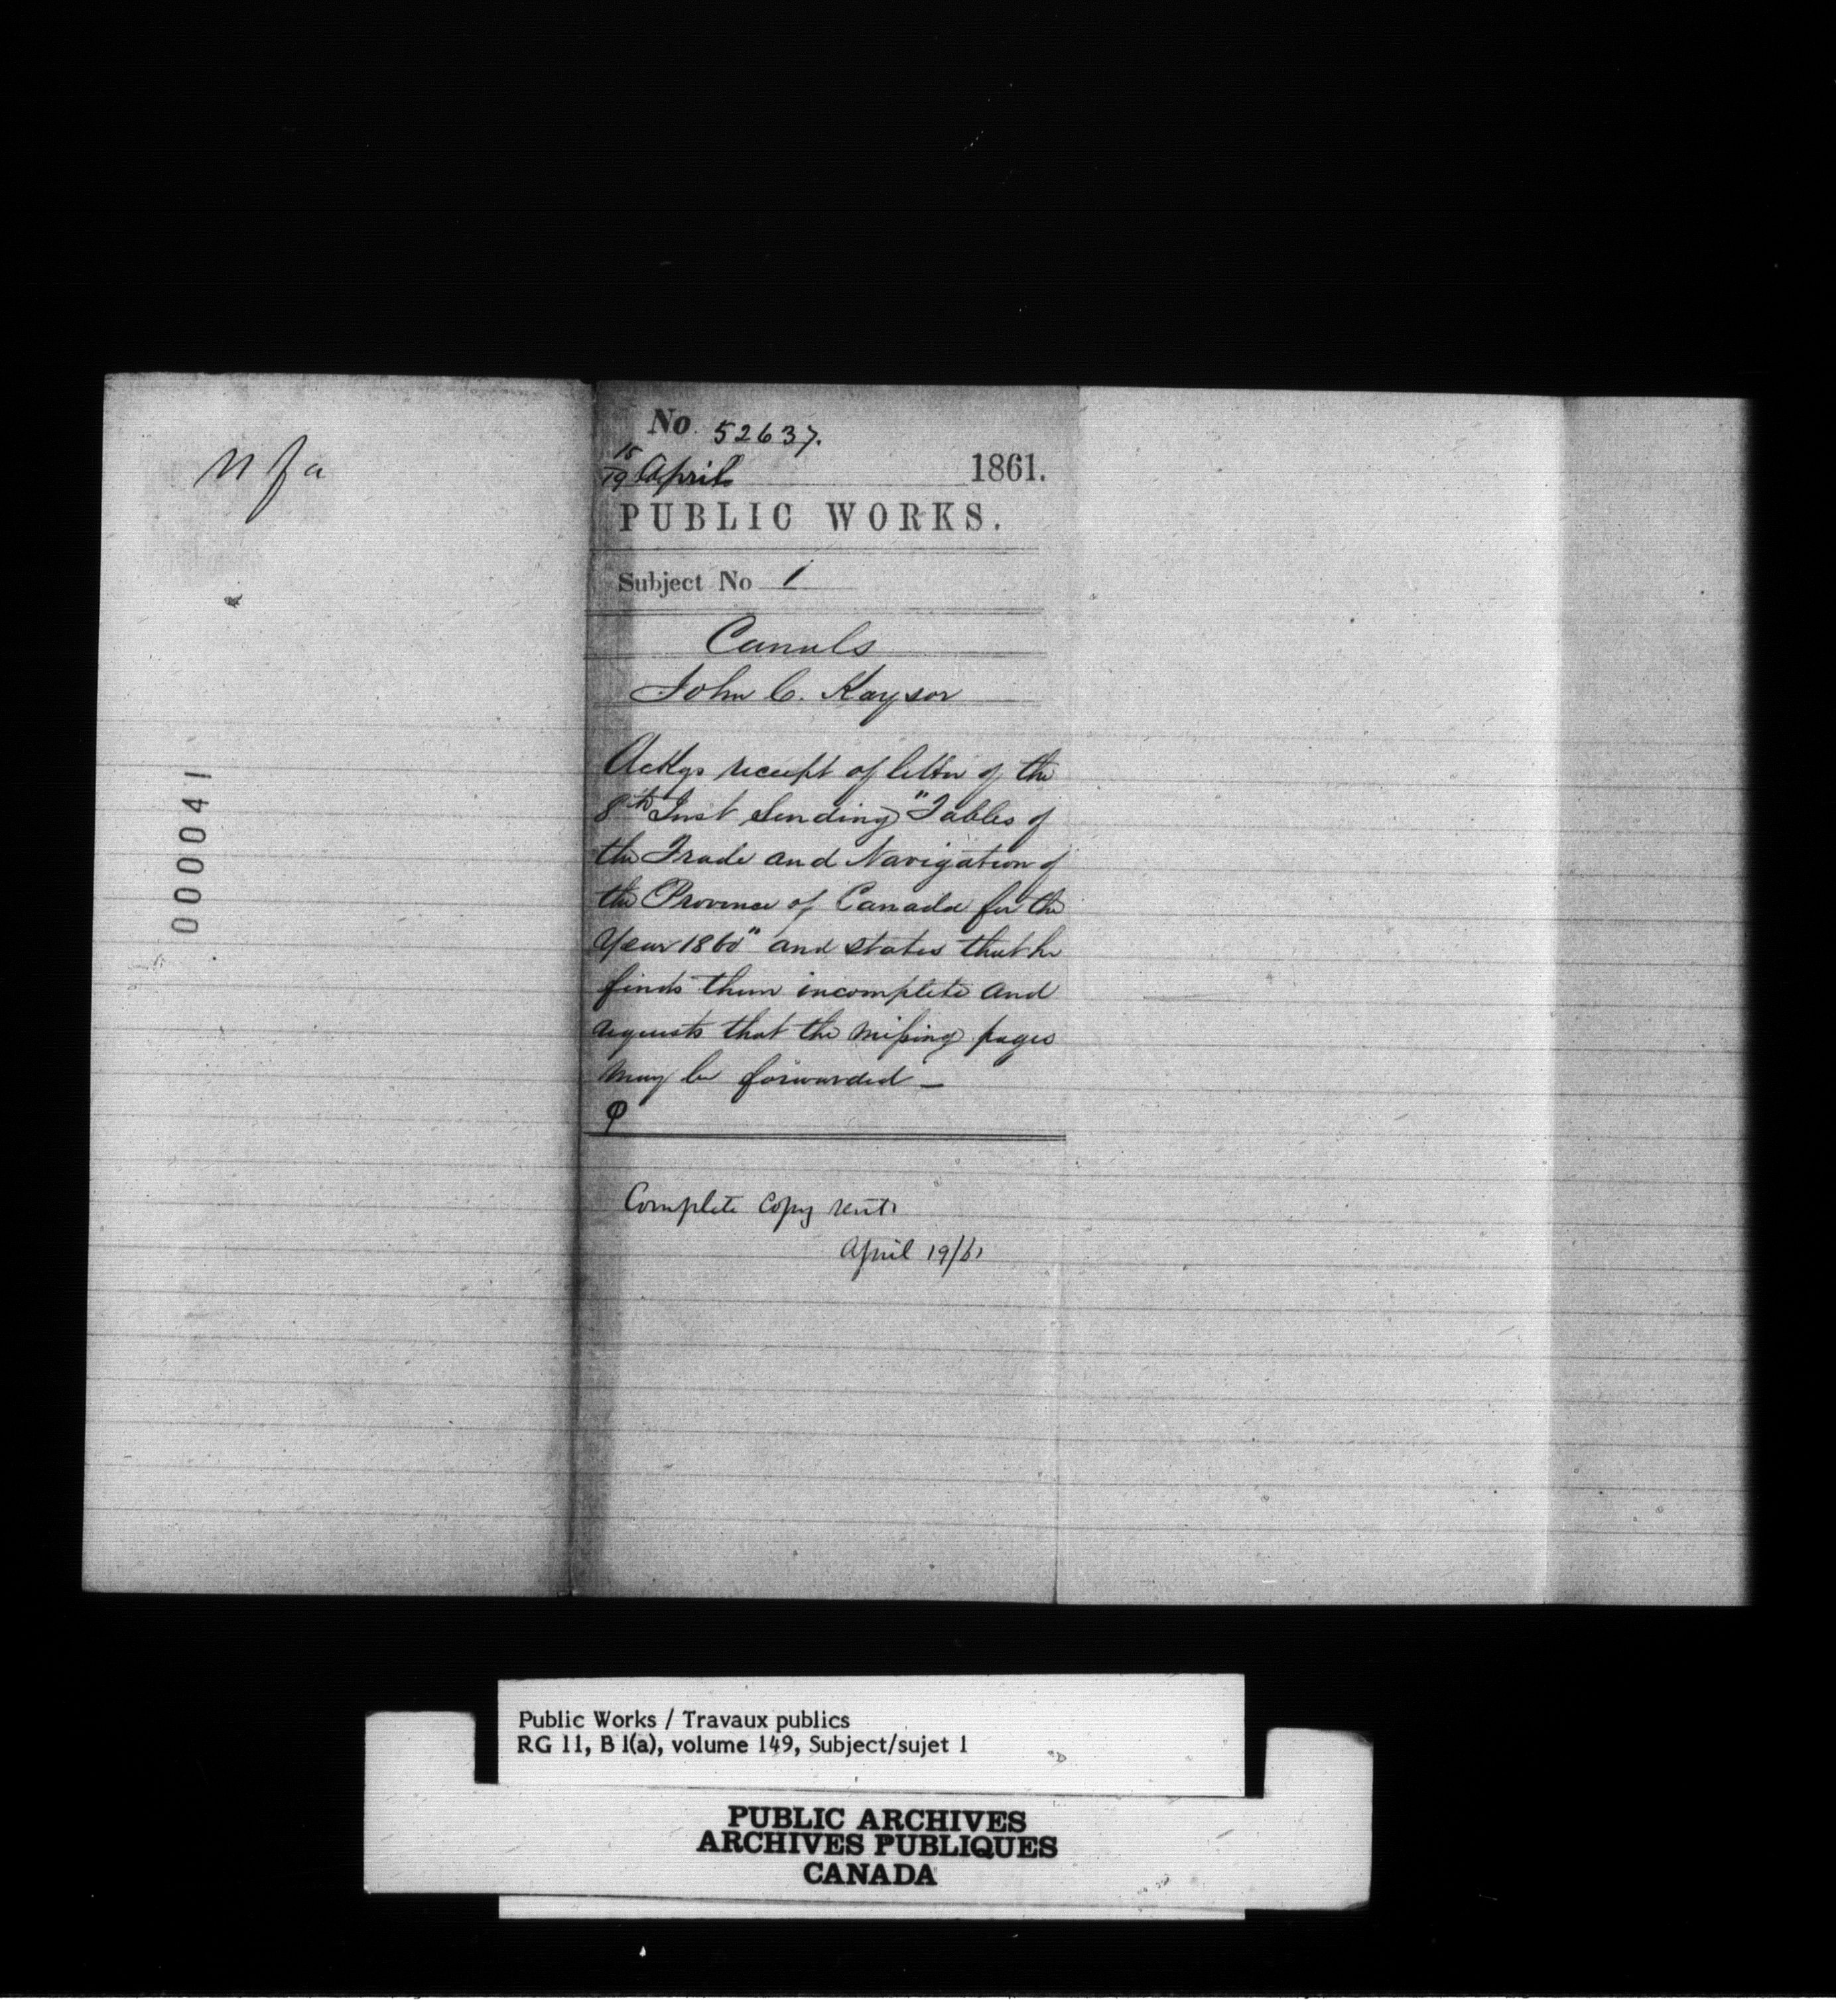 n f a
000041
No. 52637.
15/19 April 1861.
PUBLIC WORKS.
Subject No 1
Canals
John C. Kayser
Ackgs receipt of letter of the
8th Inst sending "Tables of
the Trade and Navigation of
the Province of Canada for the
Year 1860" and states that he
finds them incomplete and
requests that the missing pages
may be forwarded —
Complete copy sent
April 19/61
Public Works / Travaux publics
RG 11, B 1(a), volume 149, Subject/sujet 1
PUBLIC ARCHIVES
ARCHIVES PUBLIQUES
CANADA